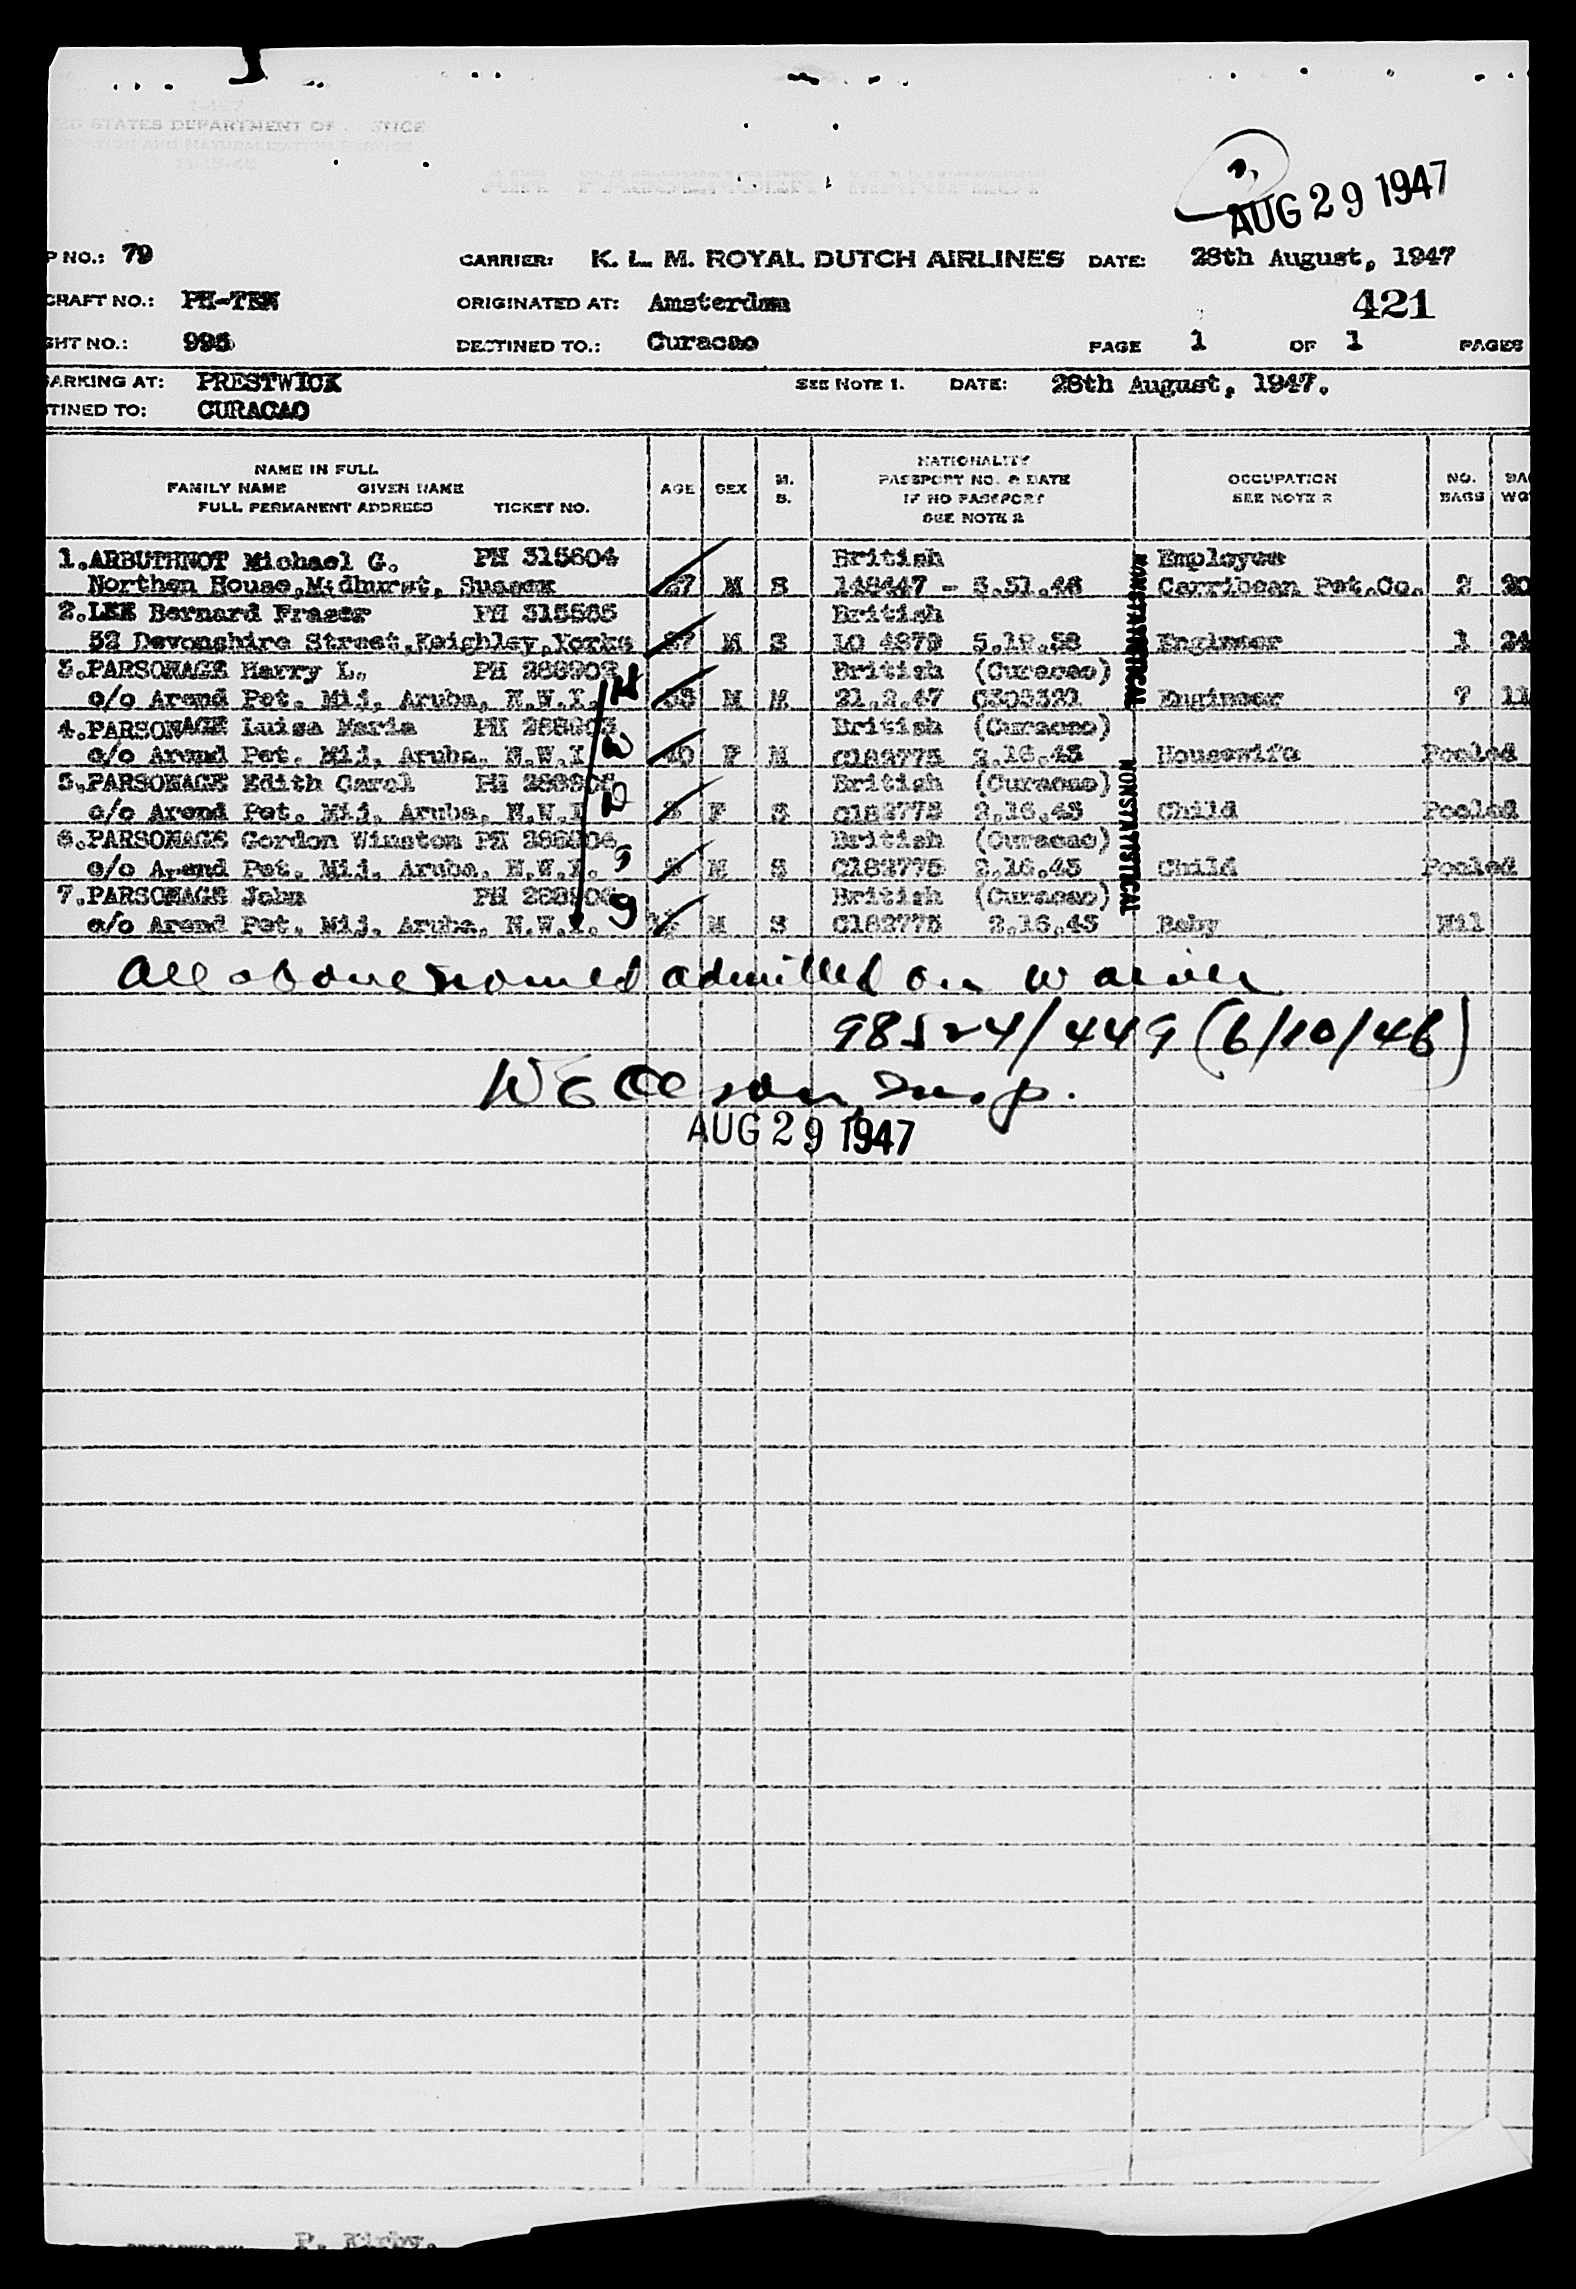 ED STATES DEPARTMENT OF STICE
AND NATURALIZATION SERVICE
AUG 29 1947
P NO.: 79 CARRIER: K. L. M. ROYAL DUTCH AIRLINES DATE: 28th August, 1947
CRAFT NO.: PH-TEN ORIGINATED AT: Amsterdam 421
GHT NO.: 995 DESTINED TO.: Curacao PAGE 1 OF 1 PAGES
BARKING AT: PRESTWICK SEE NOTE 1. DATE: 28th August, 1947.
TINED TO: CURACAO
NAME IN FULL
FAMILY NAME GIVEN NAME
FULL PERMANENT ADDRESS TICKET NO.
AGE
SEX
M.
S.
NATIONALITY
PASSPORT NO. & DATE
IF NO PASSPORT
SEE NOTE 2
OCCUPATION
SEE NOTE 2
NO.
BAGS
BA
WG
1.ARBUTHNOT Michael G. PH 315604 British Employee
Northen House,Midhurst, Sussex 27 M S 148447 - 5.31.46 Carribean Pet.Co. 2 20
2.LEE Bernard Fraser PH 315585 British
52 Devonshire Street,Keighley,Yorks 27 M S LO 4879 Engineer 1 24
3.PARSONAGE Harry L. PH British (Curacao)
c/o Arend Pet. Mij, Aruba, N.W.I. H 38 M M 21.2.47 C305321 Engineer 7 11
4.PARSONAGE Luisa Maria PH British (Curacao)
c/o Arend Pet. Mij, Aruba, N.W.I. W 40 F M C182775 2.16.45 Housewife Pooled
5.PARSONAGE Edith Carol PH British (Curacao)
c/o Arend Pet. Mij, Aruba, N.W.I. D F S C182775 2.16.45 Child Pooled
6.PARSONAGE Gordon Winston PH British (Curacao)
c/o Arend Pet. Mij, Aruba, N.W.I. S M S C182775 2.16.45 Child Pooled
7.PARSONAGE John PH British (Curacao)
c/o Arend Pet. Mij, Aruba, N.W.I. S M S C182775 2.16.45 Baby Nil
NONSTATISTICAL
NONSTATISTICAL
All above named admitted on waiver
98524/449 (6/10/46)
W E Olson, Insp.
AUG 29 1947
P. Kirby.